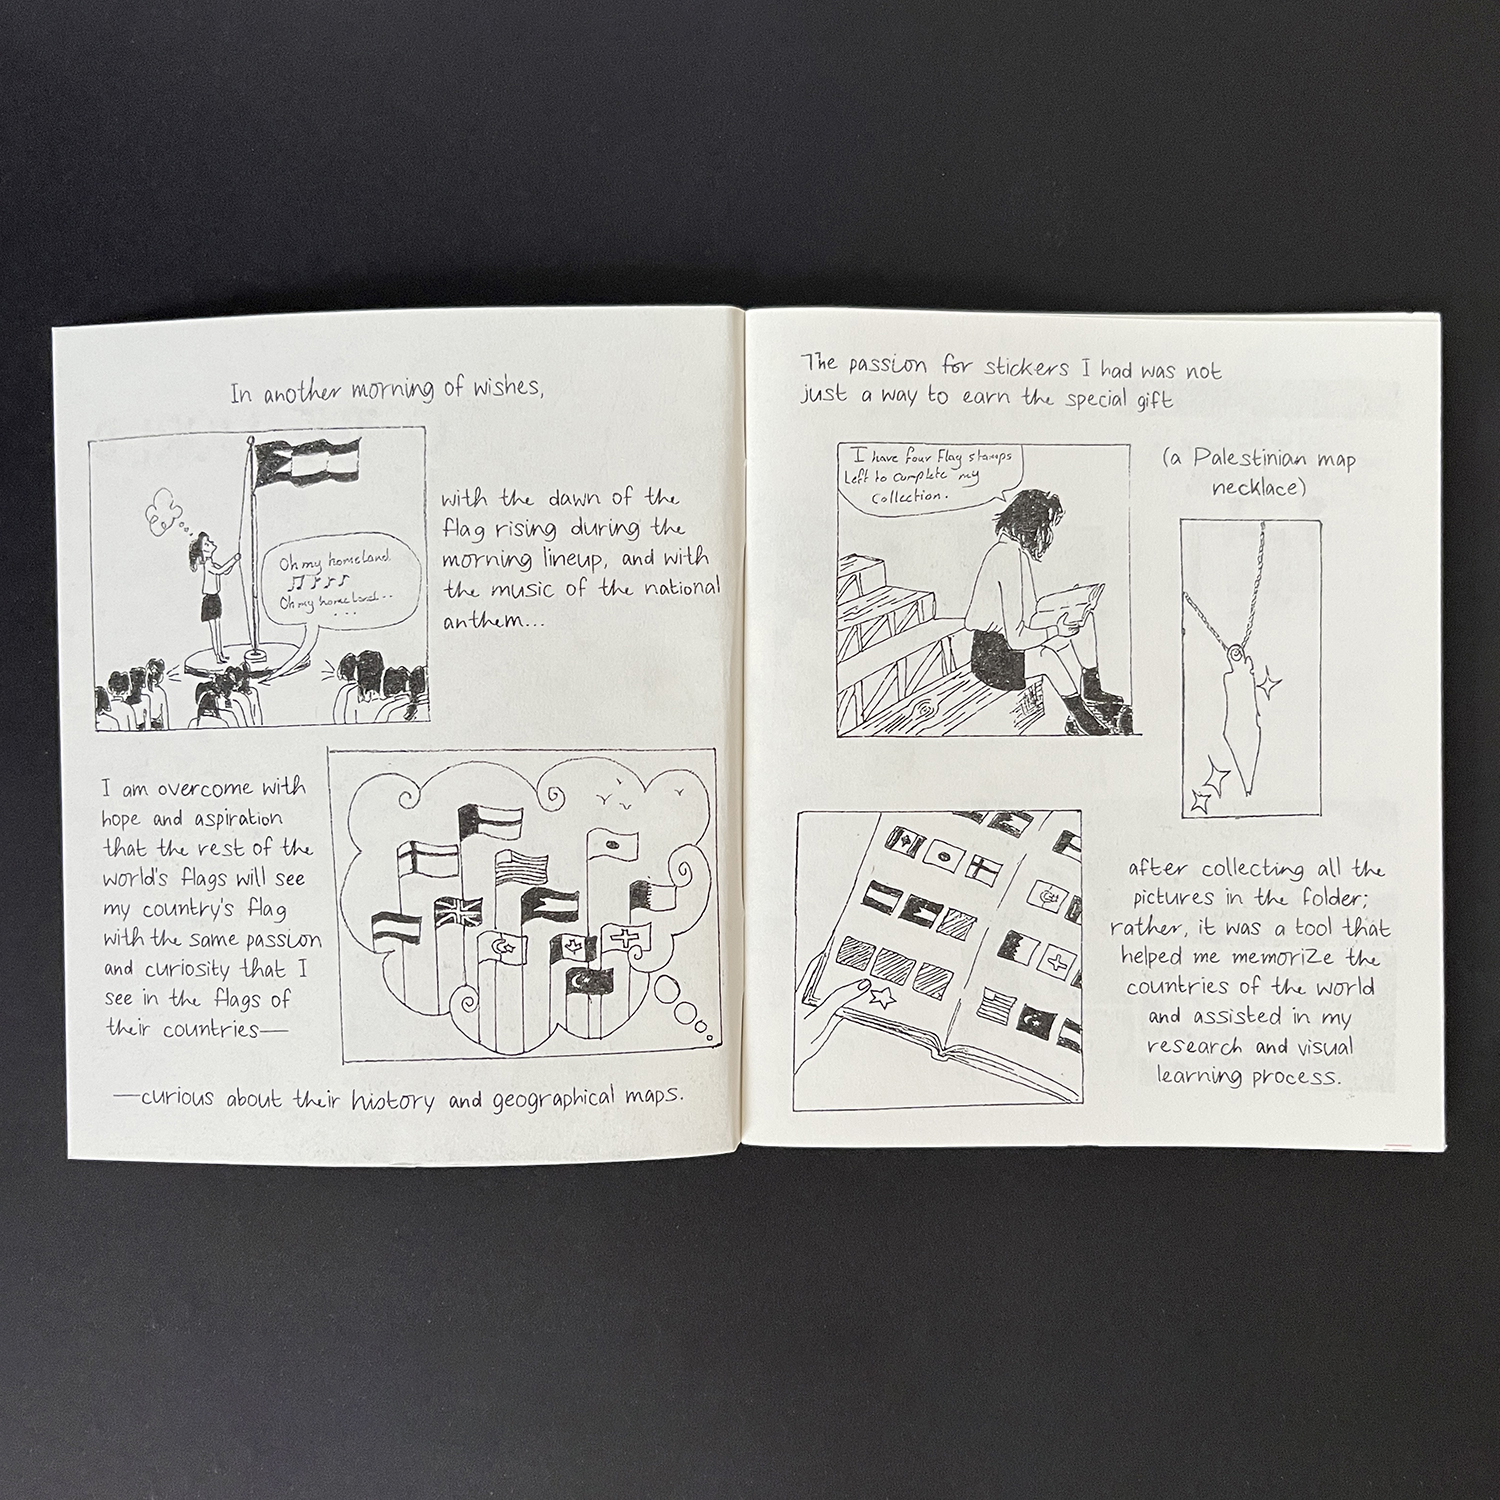 In another morning of wishes,
Oh my homeland.
Oh my homeland..
....
with the dawn of the
flag rising during the
morning lineup, and with
the music of the national
anthem...
I am overcome with
hope and aspiration
that the rest of the
world's flags will see
my country's flag
with the same passion
and curiosity that I
see in the flags of
their countries—
—curious about their history and geographical maps.
The passion for stickers I had was not
just a way to earn the special gift
I have four Flag stamps
Left to complete my
Collection.
(a Palestinian map
necklace)
after collecting all the
pictures in the folder;
rather, it was a tool that
helped me memorize the
countries of the world
and assisted in my
research and visual
learning process.